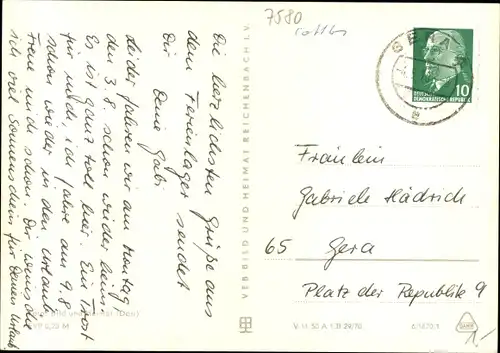 7580
Die herzlichsten Grüße aus
dem Ferienlager sendet
Dir Deine Gabi
Leider fahren wir am Montag
den 3.8. schon wieder heim.
Es ist ganz toll hier. Ein Trost
für mich, ich fahre am 9.8
schon wieder in den Urlaub.
Freue mich schon. Dir wünsche
ich viel Sonnenschein für Deinen Urlaub
VEB BILD UND HEIMAT REICHENBACH I. V.
GERA
10
DEUTSCHE
DEMOKRATISCHE REPUBLIK
Fräulein
Gabriele Hädrich
65 Gera
Platz der Republik 9
0,20 M
V 11 50 A 1/B 29/70
1.-